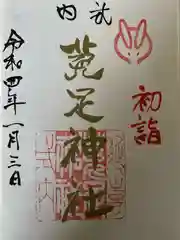 式内
初詣
菟足神社
令和四年一月三日